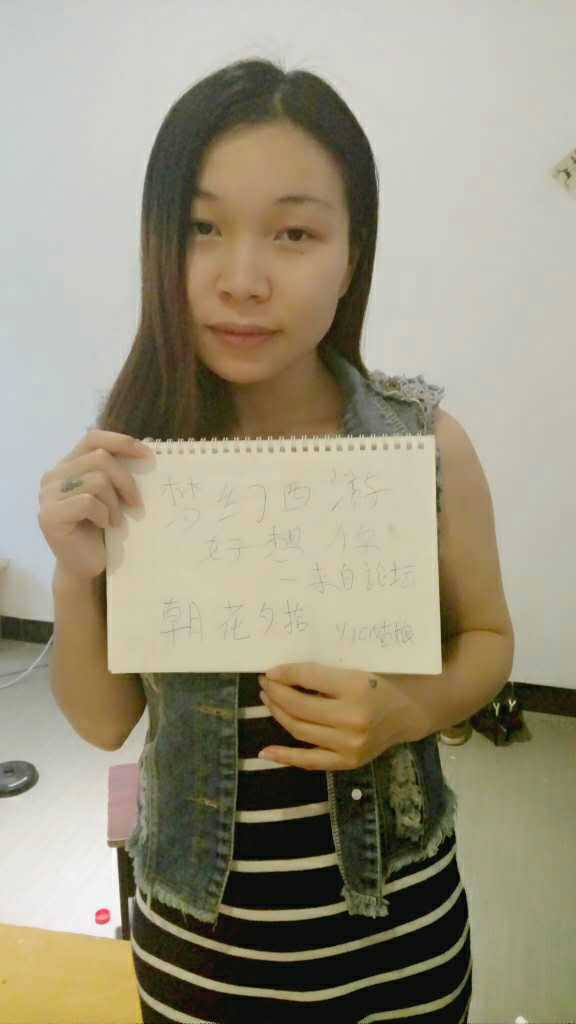 梦幻西游
好想你
一来自论坛
朝花夕拾